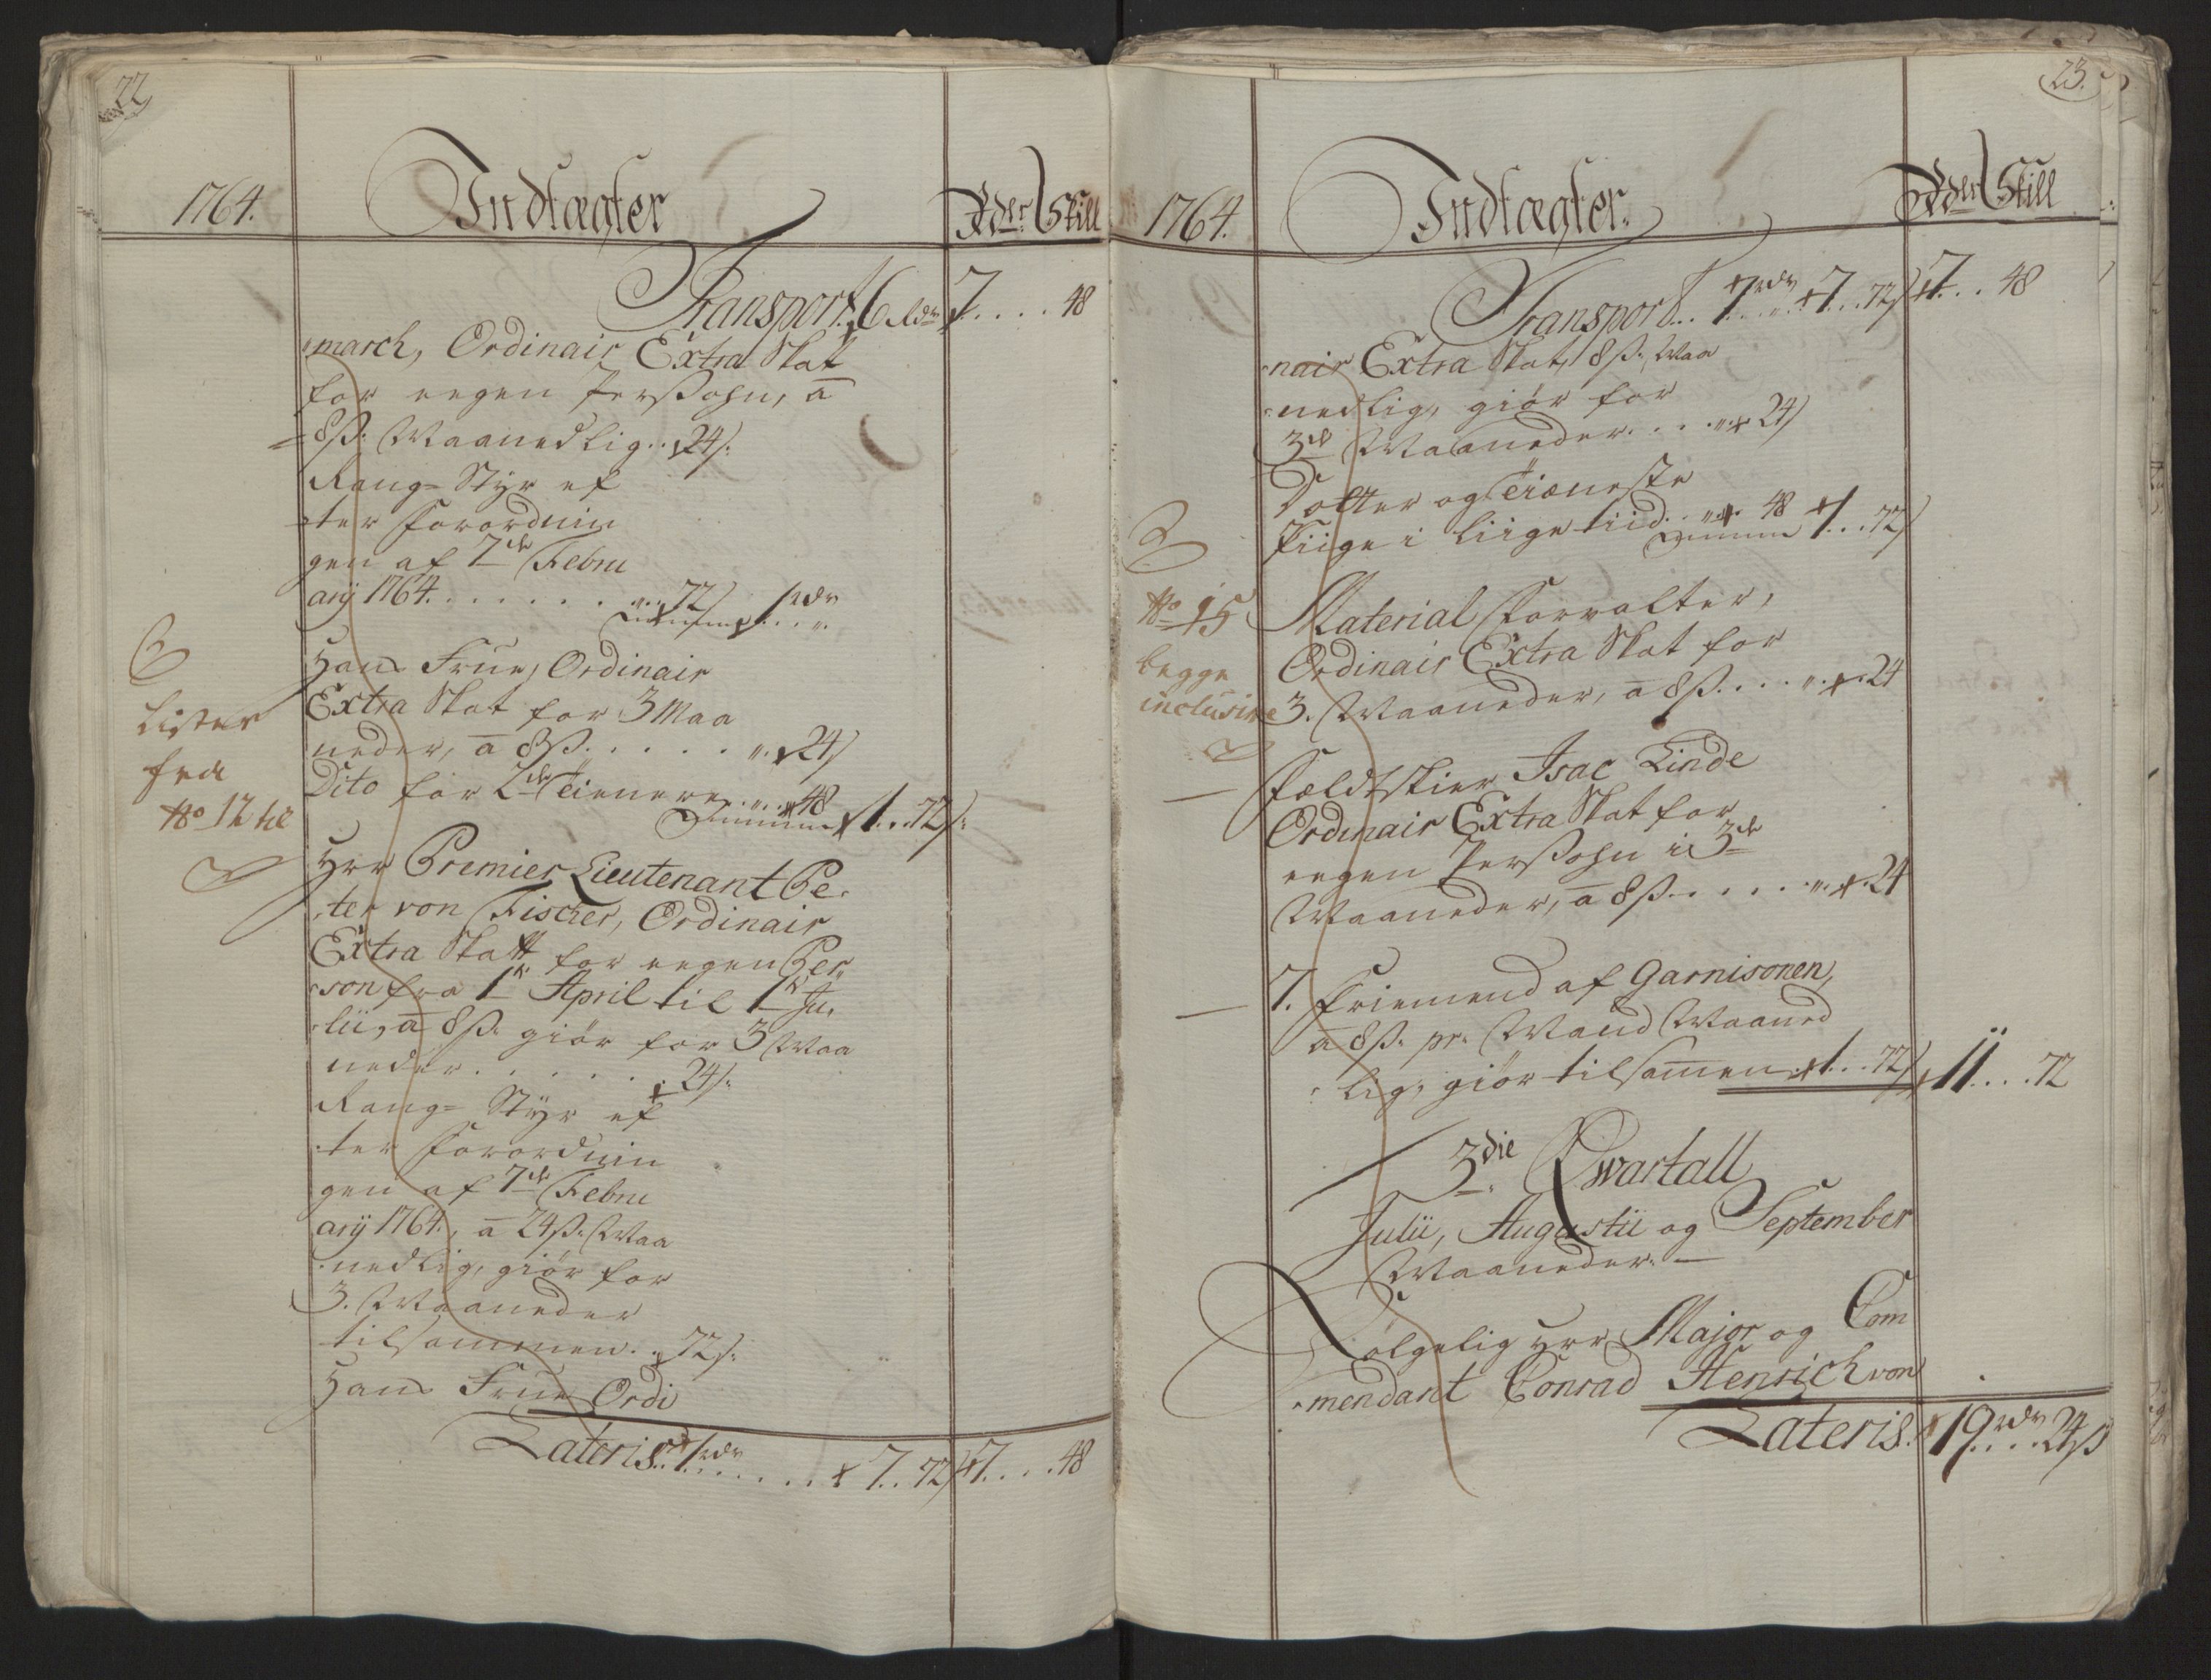 22
1764.
Indtægter
Rdlr Skill
Transport 6 Rdr 7....48
march, Ordinair Extra Skat
for eegen Perssohn, a
8ß: Maanedlig..24ß:
Rang-Styr ef
ter Forordnin
gen af 7de Febru
arij 1764........72ß
Summa 1 rdr ..
Hans Frue, Ordinair
Extra Skat for 3 Maa
neder, a 8ß......24ß
Dito for 2de Tienere....48
Summa 1..72ß:
Lister
fra
No 12 til
Hrr Premier Lieutenant Pe
ter von Fischer, Ordinair
Extra Skatt for eegen Per
son fra 1te April til 1te Ju
lii, a 8ß. giør for 3 Maa
neder.......24ß:
Rang-Styr ef
ter Forordnin
gen af 7de Febru
arij 1764., a 24ß. Maa
nedlig, giør for
3. Maaneder
tilsammen..72ß:
Hans Frue Ordi
Lateris.. 1 rdr....... 7..72ß 7....48
23.
1764.
Indtægter.
Rdlr Skill
Transport... 7 rdr 7..72ß 7...48
nair Extra Skat, 8ß. Maa
nedlig, giør for
3de Maaneder.....24ß
Dotter og Tieneste
Piige i liige tiid....48
Summa 1..72ß
No 15
begge
inclusive
Material Forvalter,
Ordinair Extra Skat for
3. Maaneder, a 8ß.....24
Feldtskier Isac Linde
Ordinair Extra Skat for
eegen Perssohn i 3de
Maaneder, a 8ß......24
7. Friemend af Garnisonen,
a 8ß. pr. Mand Maaned
lig, giør tilsamen 1...72ß 11....72
3die Qvartall
Julii, Augustii og September
Maaneder.
Følgelig Hrr Major og Com
mendant Conrad Henrich von
Lateris. 19 rdr...24ß